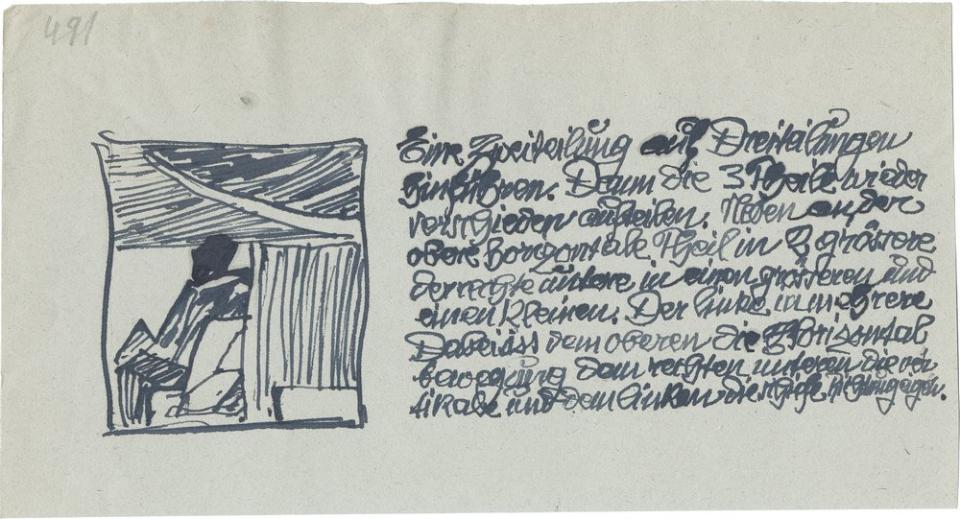 491
Eine Zweiteilung auf Dreiteilungen
hinführen. Dann die 3 Theile wieder
verschieden aufteilen. Neben an der
obere horizontale Theil in 2 grössere
der rechte untere in einen grösseren und
einen kleinen. Der linke in mehrere
Dabei ist dem oberen die Horizontal
bewegung dem rechten unteren die ver
tikale und dem linken die schiefe